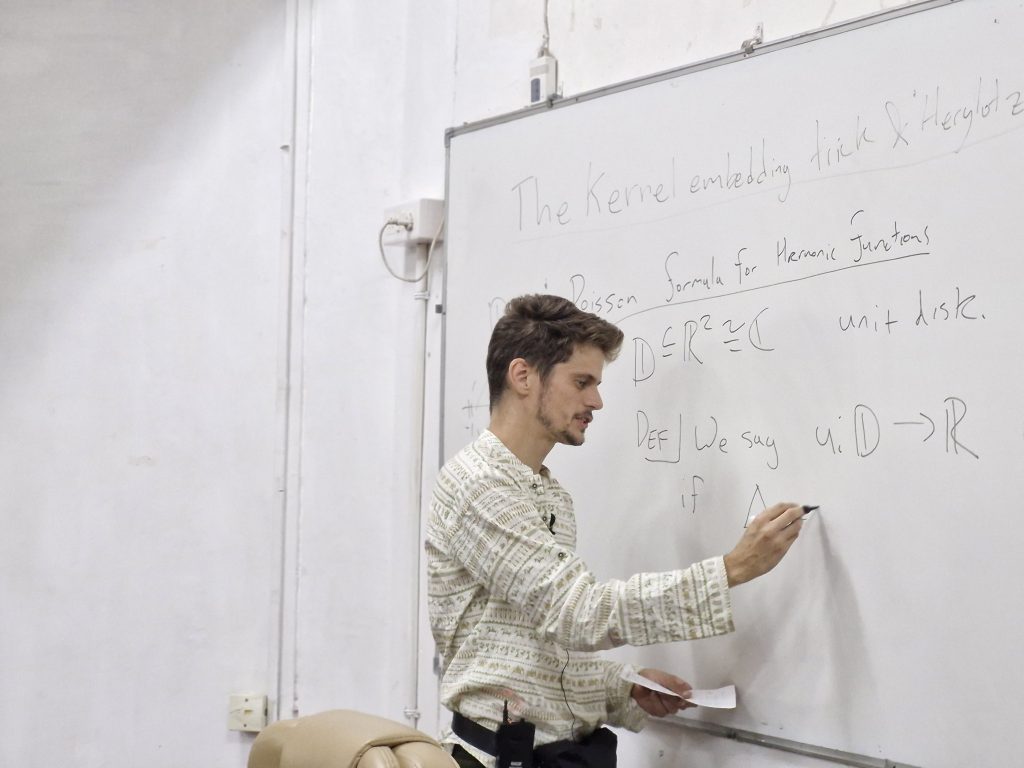 The Kernel embedding trick & Herglotz
Poisson formula for Hermonic functions
𝔻 ⊆ ℝ² ≅ ℂ unit disk.
DEF⌋ We say u: 𝔻 → ℝ
if Δ